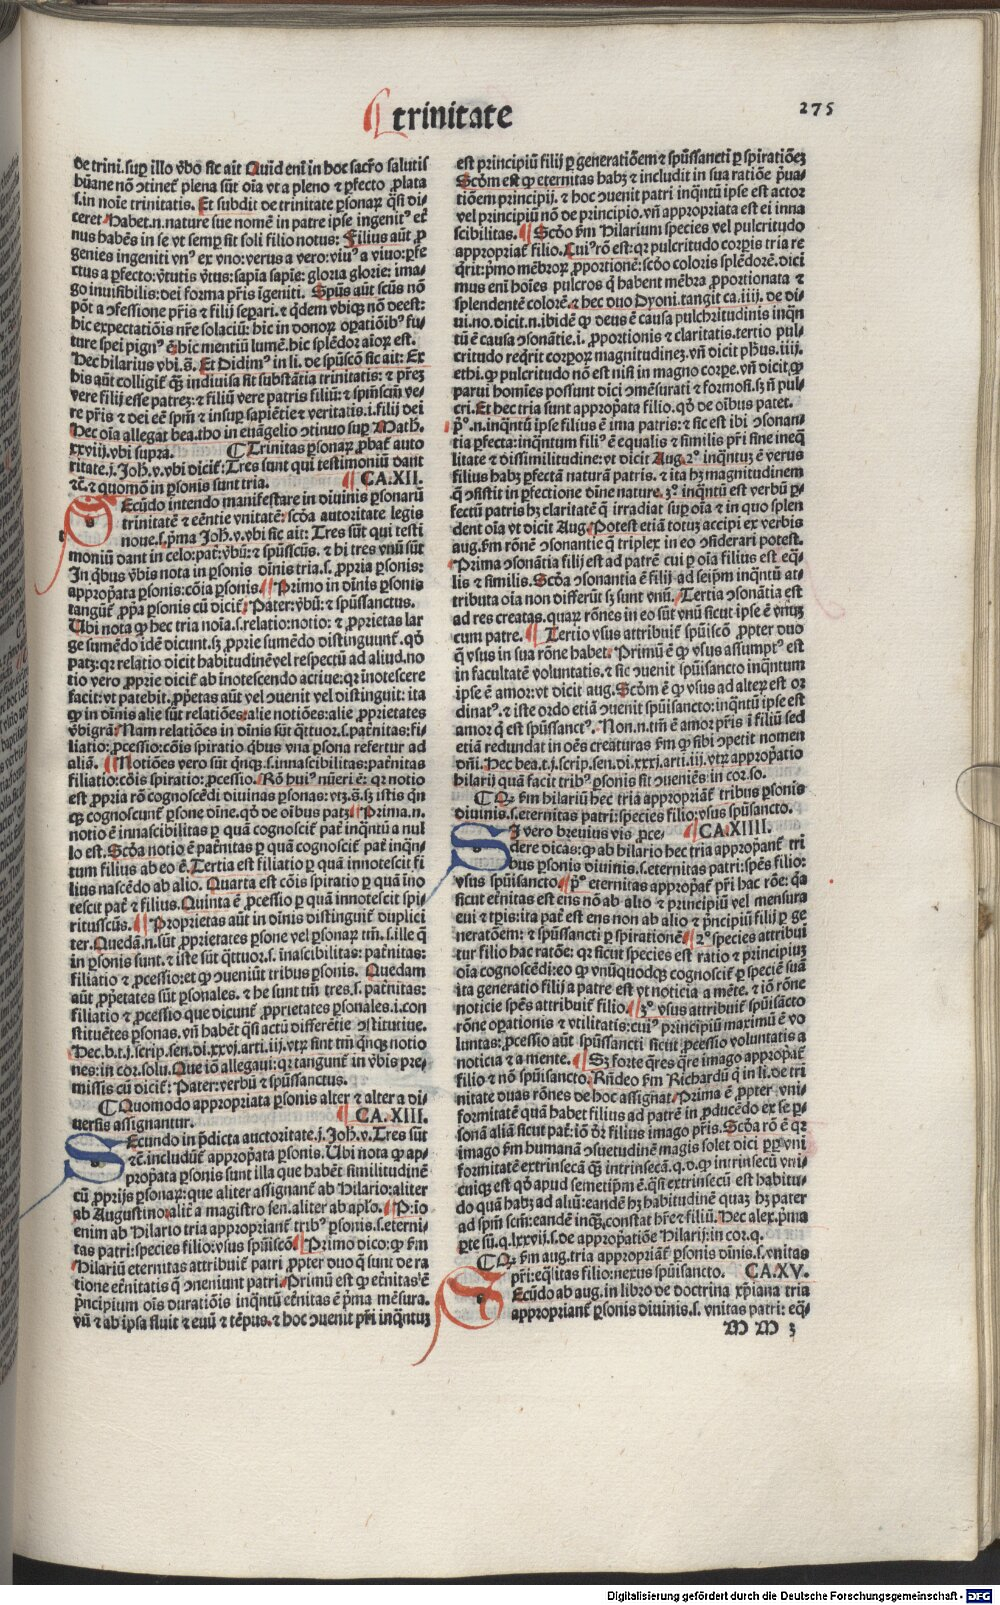 trinitate
275
de trini. sup̄ illo v̄bo sic ait Quid em̄ in hoc sacr̄o salutis
būane nō ɔtinet̄ plena sūt oīa vt a pleno ⁊ ꝑfecto ꝓlata
.s. in noīe trinitatis. Et subdit de trinitate ꝑsonaꝝ q̄si di-
ceret Habet .n. nature sue nomē in patre ipse ingenitꝰ et̄
nus habēs in se vt semꝑ sit soli filio notus: Filius aūt ꝓ
genies ingeniti vnꝰ ex vno: verus a vero: viuꝰ a viuo: ꝑfe
ctus a ꝑfecto: v̄tutis v̄tus: sapīa sapīe: gloria glorie: ima-
go inuisibilis: dei forma pr̄is īgeniti. Spūs aūt sc̄us nō
pōt a ɔfessione pr̄is ⁊ filij separi. ⁊ q̄dem vbiqꝫ nō deest:
hic expectatiōis nr̄e solaciū: hic in donoꝝ oꝑatiōibꝰ fu-
ture spei pignꝰ ē: hic mentiū lumē. hic splēdor aīoꝝ est.
Hec hilarius vbi .s̄. Et Didimꝰ in li. de spūscō sic ait: Ex
his aūt colligit̄ qꝫ indiuisa sit substātia trinitatis: ⁊ pr̄ez
vere filij esse patrez: ⁊ filiū vere patris filiū: ⁊ spm̄scm̄ ve-
re pr̄is ⁊ dei eē spm̄ ⁊ insuꝑ sapiētie ⁊ veritatis .i. filij dei
Hec oīa allegat bea. tho in euāgelio ɔtinuo suꝑ Math.
xxviij. vbi supra. ¶ Trinitas ꝑsonaꝝ ꝓbat̄ auto
ritate .j. Joh̄. v. vbi dicit̄: Tres sunt qui testimoniū dant
⁊c̄. ⁊ quomō in ꝑsonis sunt tria. CA. XII.
Ecūdo intendo manifestare in diuinis ꝑsonarū
trinitatē ⁊ eēntie vnitatē: scd̄a autoritate legis
noue .s. p̄ma Joh̄. v. vbi sic ait: Tres sūt qui testi
moniū dant in celo: pat̄: v̄bū: ⁊ spūsscūs. ⁊ hi tres vnū sūt
In q̄bus v̄bis nota in ꝑsonis dīnis tria .s. ꝓpria ꝑsonis:
appropāta ꝑsonis: cōia ꝑsonis. Primo in dīnis ꝑsonis
tangūt̄ ꝓpa ꝑsonis cū dicit̄: Pater: v̄bū: ⁊ spūssanctus.
Ubi nota ꝙ hec tria noīa .s. relatio: notio: ⁊ ꝓprietas lar
ge sumēdo idē dicunt. sꝫ ꝓprie sumēdo distinguunt̄. qd̄
patꝫ: qꝛ relatio dicit habitudinē vel respectū ad aliud. no
tio vero ꝓprie dicit̄ ab inotescendo actiue: qꝛ inotescere
facit: vt patebit. ꝓp̄etas aūt vel ɔuenit vel distinguit: ita
ꝙ in dīnis alie sūt relatiōes: alie notiōes: alie ꝓprietates
v̄bigrā: Nam relatiōes in dīnis sūt q̄ttuor .s. pat̄nitas: fi-
liatio: ꝓcessio: cōis spiratio q̄bus vna ꝑsona refertur ad
aliā. Notiōes vero sūt q̄nqꝫ .s. innascibilitas: pat̄nitas
filiatio: cōis spiratio: ꝓcessio. Rō huiꝰ nūeri ē: qꝛ notio
est ꝓpria rō cognoscēdi diuinas ꝑsonas: vtꝫ .s̄. sꝫ istis q̄n
qꝫ cognoscunt̄ ꝑsone dīne. qd̄ de oībus patꝫ Prima .n.
notio ē innascibilitas ꝑ quā cognoscit̄ pat̄ inq̄ntū a nul
lo est. Scd̄a notio ē pat̄nitas ꝑ quā cognoscit̄ pat̄ inq̄n-
tum filius ab eo ē. Tertia est filiatio ꝑ quā innotescit fi
lius nascēdo ab alio. Quarta est cōis spiratio ꝑ quā īno
tescit pat̄ ⁊ filius. Quinta ē ꝓcessio ꝑ quā innotescit spi-
ritusscūs. Proprietas aūt in dīnis distinguit̄ duplici
ter. Quedā .n. sūt ꝓprietates ꝑsone vel ꝑsonaꝝ tm̄ .s. ille q̄
in ꝑsonis sunt. ⁊ iste sūt q̄ttuor .s. inascibilitas: pat̄nitas:
filiatio ⁊ ꝓcessio: et ꝙ ɔueniūt tribus ꝑsonis. Quedam
aūt ꝓp̄etates sūt ꝑsonales. ⁊ he sunt tm̄ tres .s. pat̄nitas:
filiatio ⁊ ꝓcessio que dicunt̄ ꝓprietates ꝑsonales .i. con
stituētes ꝑsonas. vn̄ habēt q̄si actū differētie ɔstitutiue.
Hec .b. t. j. scrip. sen. di. xxvj. arti. iij. vtꝝ sint tm̄ q̄nqꝫ notio
nes: in cor. solu. Que iō allegaui: qꝛ tangunt̄ in v̄bis pre-
missis cū dicit̄: Pater: verbū ⁊ spūssanctus.
¶ Quomodo appropriata ꝑsonis alter ⁊ alter a di-
uersis assignantur. CA. XIII.
Ecundo in p̄dicta auctoritate .j. Joh̄. v. Tres sūt
⁊c̄. includūt̄ appropāta ꝑsonis. Ubi nota ꝙ ap-
propāta ꝑsonis sunt illa que habēt similitudinē
cū ꝓprijs ꝑsonaꝝ: que aliter assignant̄ ab Hilario: aliter
ab Augustino: alit̄ a magistro sen. aliter ab aplo. Prīo
enim ab Hilario tria appropriant̄ tribꝰ ꝑsonis .s. eterni-
tas patri: species filio: vsus spūiscō Primo dico: ꝙ fm̄
Hilariū eternitas attribuit̄ patri ꝓpter duo q̄ sunt de ra
tione et̄nitatis q̄ ɔueniunt patri. Primū est ꝙ et̄nitas ē
p̄ncipium oīs duratiōis inq̄ntū et̄nitas ē p̄ma mēsura.
vn̄ ⁊ ab ipsa fluit ⁊ euū ⁊ tēpus. ⁊ hoc ɔuenit pr̄i inq̄ntuz
est principiū filij ꝑ generatiōem ⁊ spūssancti ꝑ spiratiōez
Scd̄m est ꝙ eternitas habꝫ ⁊ includit in sua ratiōe p̄ua-
tiōem principij. ⁊ hoc ɔuenit patri inq̄ntū ipse est actor
vel principiū nō de principio. vn̄ appropriata est ei inna
scibilitas. Scd̄o fm̄ Hilarium species vel pulcritudo
appropriat̄ filio. Cuiꝰ rō est: qꝛ pulcritudo corꝑis tria re
q̄rit: p̄mo mēbroꝝ ꝓportionē: scd̄o coloris splēdorē. dici
mus em̄ hoīes pulcros q̄ habent mēbra ꝓportionata ⁊
splendentē colorē. ⁊ hec duo Dyoni. tangit ca. iiij. de di-
ui. no. dicit .n. ibidē ꝙ deus ē causa pulchritudinis inq̄n
tū ē causa ɔsonātie .i. ꝓportionis ⁊ claritatis. tertio pul-
critudo req̄rit corꝑoꝝ magnitudinez. vn̄ dicit ph̄us. iiij.
ethi. ꝙ pulcritudo nō est nisi in magno corꝑe. vn̄ dicit ꝙ
parui homīes possunt dici ɔmēsurati ⁊ formosi. sꝫ nō pul-
cri. Et hec tria sunt appropāta filio. qd̄ de oībus patet.
p̄ᵒ .n. inq̄ntū ipse filius ē ima patris: ⁊ sic est ibi ɔsonan-
tia ꝑfecta: inq̄ntum filiꝰ ē equalis ⁊ similis pr̄i sine ineq̄
litate ⁊ dissimilitudine: vt dicit Aug. 2ᵒ inq̄ntuꝫ ē verus
filius habꝫ ꝑfectā naturā patris. ⁊ ita hꝫ magnitudinem
q̄ ɔsistit in ꝑfectione dīne nature. 3ᵒ inq̄ntū est verbū ꝑ-
fectū patris hꝫ claritatē q̄ irradiat suꝑ oīa ⁊ in quo splen
dent oīa vt dicit Aug. Potest etiā totuꝫ accipi ex verbis
aug. fm̄ rōnē ɔsonantie q̄ triplex in eo ɔsiderari potest.
Prima ɔsonātia filij est ad patrē cui ꝑ oīa filius est eq̄-
lis ⁊ similis. Scd̄a ɔsonantia ē filij ad seipm̄ inq̄ntū at-
tributa oīa non differūt sꝫ sunt vnū. Tertia ɔsonātia est
ad res creatas. quaꝝ rōnes in eo sūt vnū sicut ipse ē vnuꝫ
cum patre. Tertio vsus attribuit̄ spūiscō ꝓpter duo
q̄ vsus in sua rōne habet. Primū ē ꝙ vsus assumptꝰ est
in facultatē voluntatis. ⁊ sic ɔuenit spūisancto inq̄ntum
ipse ē amor: vt dicit aug. Scd̄m ē ꝙ vsus ad alteꝝ est or
dinatꝰ. ⁊ iste ordo etiā ɔuenit spūisancto: inq̄ntū ipse est
amor q̄ est spūssanctꝰ. Non .n. tm̄ ē amor pr̄is ī filiū sed
etiā redundat in oēs creaturas fm̄ ꝙ sibi ɔpetit nomen
dn̄i. Hec bea. t. j. scrip. sen. di. xxxj. arti. iij. vtꝝ appropātio
hilarij quā facit tribꝰ ꝑsonis sit ɔueniēs in cor. so.
¶ Qꝫ fm̄ hilariū hec tria appropriāt̄ tribus ꝑsonis
diuinis .s. eternitas patri: species filio: vsus spūsancto.
I vero breuius vis ꝑce, CA. XIIII.
dere dicas: ꝙ ab hilario hec tria appropant̄ tri
bus ꝑsonis diuinis .s. eternitas patri: spēs filio:
vsus spūisancto p̄ᵒ eternitas appropāt̄ pr̄i hac rōe: q̄a
sicut et̄nitas est ens nō ab alio ⁊ principiū vel mensura
eui ⁊ tp̄is: ita pat̄ est ens non ab alio ⁊ p̄ncipiū filij ꝑ ge
neratōem: ⁊ spūssancti ꝑ spirationē 2ᵒ species attribui
tur filio hac ratōe: qꝛ sicut species est ratio ⁊ principiuꝫ
oīa cognoscēdi: eo ꝙ vnūquodqꝫ cognoscit̄ ꝑ speciē suā
ita generatio filij a patre est vt noticia a mēte. ⁊ iō rōne
noticie spēs attribuit̄ filio. 3ᵒ vsus attribuit̄ spūisācto
rōne oꝑationis ⁊ vtilitatis: cuiꝰ principiū maximū ē vo
luntas: ꝓcessio aūt spūssancti sicut ꝓcessio voluntatis a
noticia ⁊ a mente. Sꝫ forte q̄res q̄re imago appropat̄
filio ⁊ nō spūisancto. Rn̄deo fm̄ Richardū q̄ in li. de tri
nitate duas rōnes de hoc assignat. Prima ē ꝓpter vni-
formitatē quā habet filius ad patrē in ꝓducēdo ex se ꝑ-
sonā aliā sicut pat̄: iō dr̄ filius imago pr̄is. Scd̄a rō ē qꝛ
imago fm̄ humanā ɔsuetudinē magis solet dici ꝓpꝑ vni
formitatē extrinsecā q̄ꝫ intrinsecā. q. d. ꝙ intrinsecū vni-
cuiqꝫ est qd̄ apud semetip̄m ē. q̄si extrinsecū est habitu-
do quā habꝫ ad aliū: eandē hꝫ habitudinē quaꝫ hꝫ pater
ad spm̄ scm̄: eandē inq̄ꝫ, constat hr̄e ⁊ filiū. Hec alex. p̄ma
ꝑte sū. q. lxxvij. s. de appropatiōe Hilarij: in cor. q.
¶ Qꝫ fm̄ aug. tria appropriāt̄ ꝑsonis dīnis .s. vnitas
pr̄i: eq̄litas filio: nexus spūisancto. CA. XV.
Ecūdo ab aug. in libro de doctrina xp̄iana tria
appropriant̄ ꝑsonis diuinis .s. vnitas patri: eq̄-
MM 3
Digitalisierung gefördert durch die Deutsche Forschungsgemeinschaft - DFG